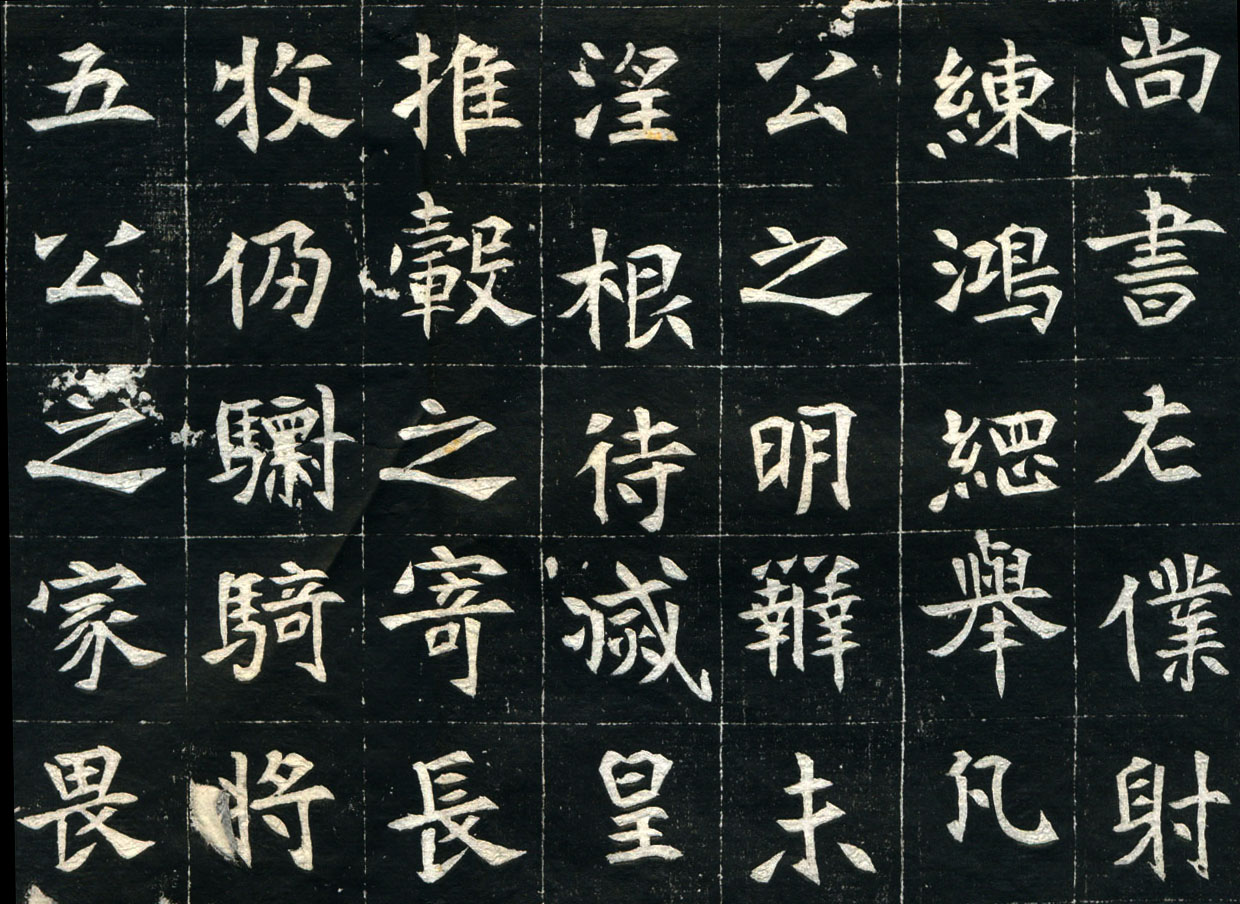 尚書左僕射
練鴻緫舉凡
公之明辯未
淫根待滅皇
推轂之寄長
牧仍驃騎將
五公之家畏